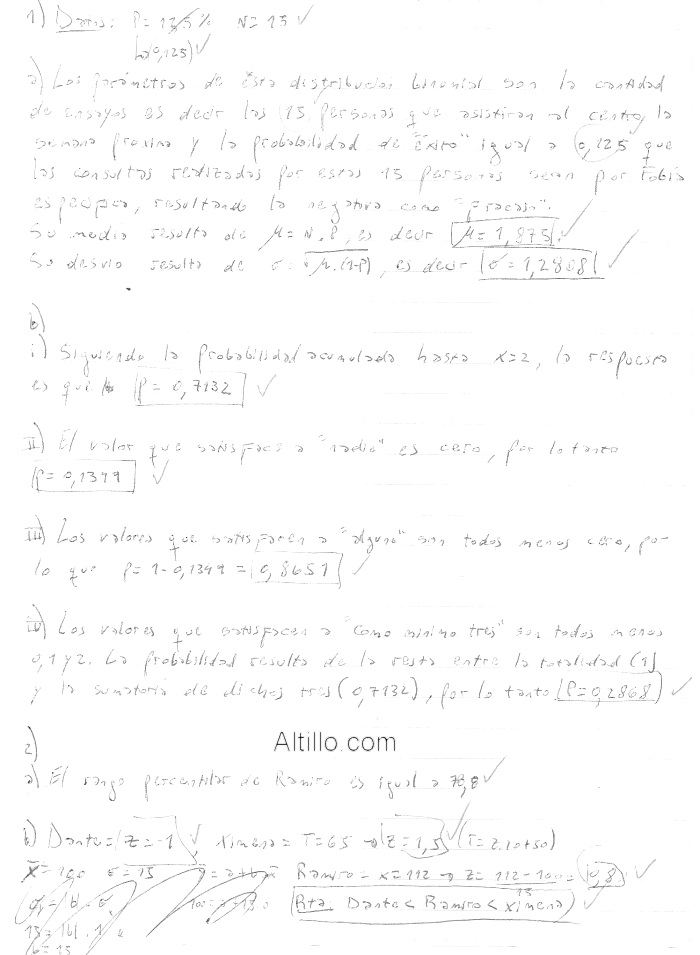 1) Datos: P= 12,5% N= 15 ✓
↳(0,125) ✓
a) Los parámetros de ésta distribución binomial son la cantidad
de ensayos es decir las 15 personas que asistiran al centro la
semana proxima y la probabilidad de "éxito" igual a 0,125 que
las consultas realizadas por estas 15 personas sean por Fobia
específica, resultando la negativa como "fracaso".
Su media resulta de μ= N.P, es decir μ= 1,875. ✓
Su desvio resulta de σ: √μ.(1-P), es decir σ=1,2808 ✓
b)
i) Siguiendo la probabilidad acumulada hasta x=2, la respuesta
es que P= 0,7132 ✓
II) El valor que satisface a "nadie" es cero, por lo tanto
P= 0,1349 ✓
III) Los valores que satisfacen a "alguno" son todos menos cero, por
lo que P= 1-0,1349 = 0,8651 ✓
iv) Los valores que satisfacen a "como minimo tres" son todos menos
0,1 y 2. La probabilidad resulta de la resta entre la totalidad (1)
y la sumatoria de dichos tres (0,7132), por lo tanto P=0,2868 ✓
Altillo.com
2)
a) El rango percentilar de Ramiro es igual a 78,8 ✓
b) Dante= z=-1 ✓ Ximena= T=65 → z= 1,5 ✓ (T= z.10+50)
x̄= 100 σ= 15 Ramiro= x=112 → z= 112-100 = 0,8 ✓
15
Rta. Dante < Ramiro < Ximena ✓
15= |b| . 1
b= 15